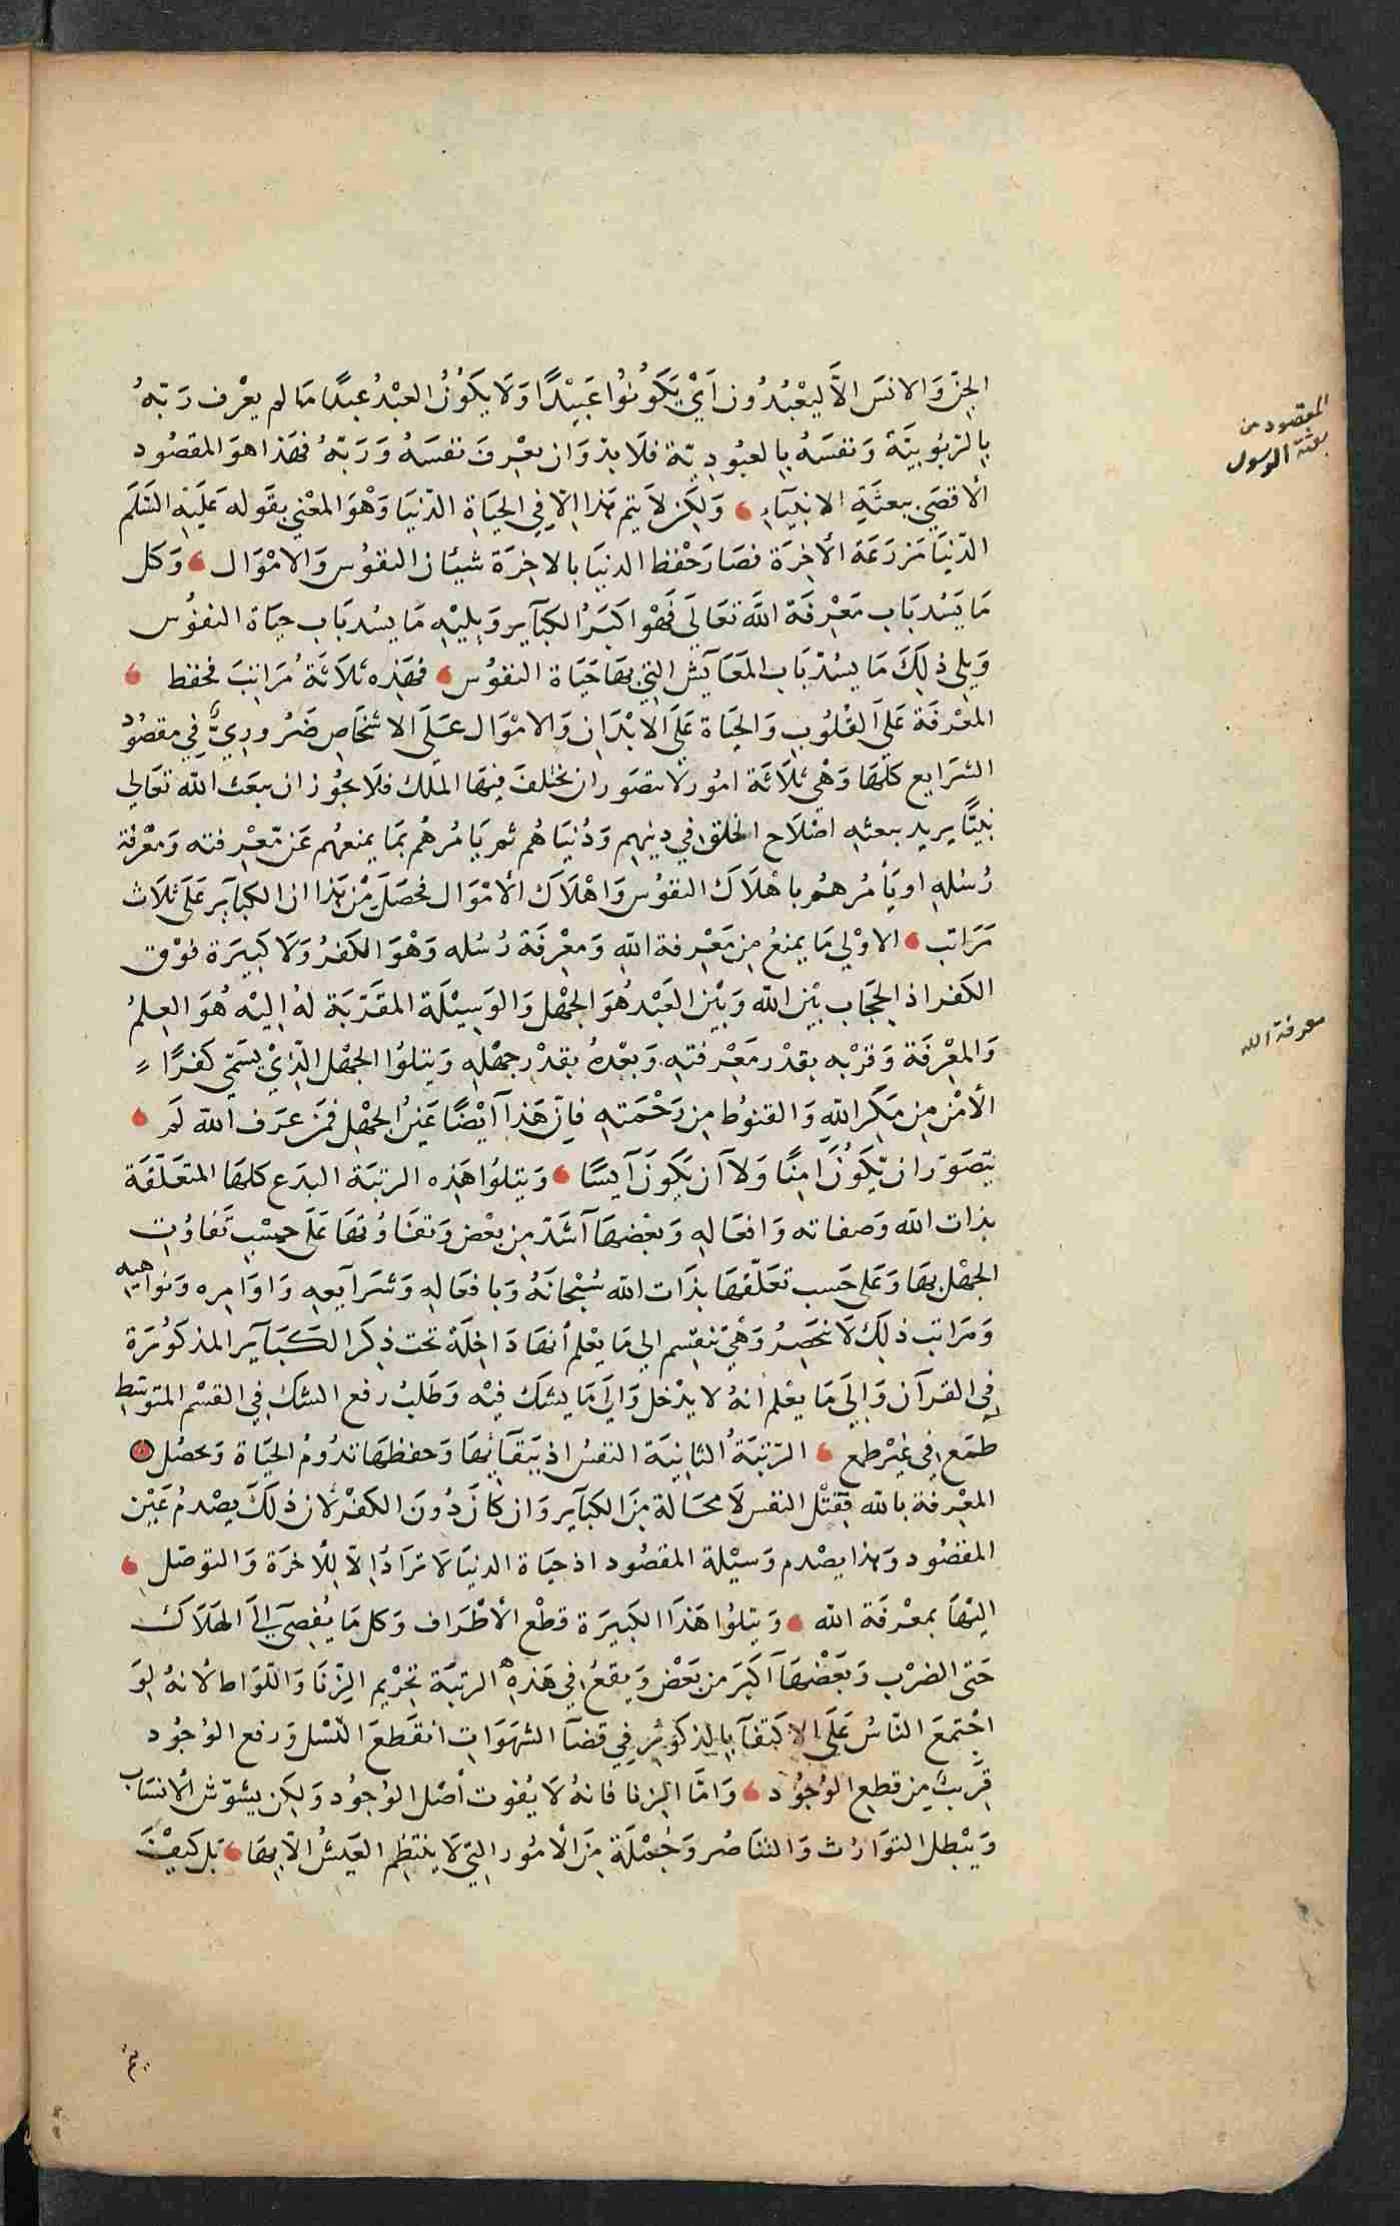 الجنّ وَالانسَ الاَّ ليَعْبُدُون اَيْ يَكَوُنوُا عَبيْدًا وَلَا يكَوُنُ العبْدُ عبدًا مَا لم يعْرف رَبّهُ
بِالرّبوُبيَّة وَنفسَهُ بِالعبُودِيّة فلَا بدّ وَان يعْرفَ نفسَهُ وَرَبّهُ فهَذا هوَ المقصُود
الأقصَي ببعثَةِ الانبيَآءِ وَلكِن لاَ يتم هَذا اِلّا فِي الحيَاةِ الدّنيَا وَهْوَ المعْني بقَوله عَليَهِ السَّلَم
الدّنيَا مَزرَعَة الأخِرَة فصَارَ حْفظ الدنيَا بالاخِرَة شيئان النفوُس وَالامْوَال وَكل
مَا يَسُد بَاب مَعْرِفَة اللَّه تعَالَي فَهْوَ اكبَرُ الكبَآير وَيليْهِ مَا يسُد بَاب حيَاة النفوُس
وَيلي ذلِكَ مَا يسُدّ بَاب المعَايَش التِي بهَا حَيَاة النفوُس فهَذِه ثلاَثَة مُرَاتبَ فحفظ
المعْرفَة عَليَ القلُوبِ وَالحيَاة عَليَ الاَبْدَانِ وَالامْوَال عَلَي الاشخَاصِ ضَرُورِيٌّ فِي مقصُود
الشرَايع كلهَا وَهْي ثلَاثَة امُور لا يتصَور ان تختلفَ فيهَا الملل فلَا يجُوز ان يبعَث اللّه تعَالي
نبيًّا يريد ببعثهِ اصْلَاح الخلق فِي دينهِم وَدُنيَاهُم ثم يَامُرهُم بمَا يمنعهُم عَن مّعْرِفته وَمعْرفة
رُسُلهِ او يَأمُرهُمُ باهْلَاكَ النفوُس وَاهْلَاكَ الأمْوَال فحصَلَ مْن هَذا ان الكبَآير عَلَي ثلَاث
مَرَاتب الاوْلي مَا يمنعُ مِن مَعْرِفة اللّهِ وَمعِرفَة رُسُله وَهْوَ الكفرُ وَلَا كبيَرَة فوْق
الكفر اذ الحِجَاب بيْن اللّه وَبيْن العَبْد هُوَ الجهْل وَالوَسِيْلَة المقَرّبَة لهُ اليْه هُوَ العِلمُ
وَالمعْرِفَة وَقرْبه بقدْر مَعْرِفتهِ وَبعْدهُ بقدْر جهْلهِ وَيتلوُا الجهْل الّذِيْ يسَمّي كفرًا
الأمْن مِن مَكرِ اللّهِ وَالقنوُط مِن رَحْمَتهِ فاِنّ هَذَا اَيْضًا عَينُ الجهْل فمَن عرَف اللّه لَم
يتصَوّر ان يّكَوُنَ امِنًا وَلاَ اَن يَكوَنَ آيسًا وَيتلوُا هَذِه الرتبَة البدَع كلهَا المتعَلّقَة
بذات اللّه وَصفاته وَافعَالهِ وَبعْضهَا آشَدّ مِن بعْض وَتفَاوُتهَا عَلَى حسْبِ تَفاوُتِ
الجهْل بهَا وَعَلى حَسب تعَلّقهَا بذَات اللّه سُبْحَانَهُ وَبافعَالهِ وَشرَآيعهِ وَاوَامِره وَنوَاهيه
وَمرَاتب ذلِكَ لَا تنحصِرُ وَهْيَ تنقسِم الي مَا يعْلم أنهَا دَاخِلَة تحت ذِكرَ الكَبَآير المذكوُرَة
فِي القرآن وَالِيَ مَا يعْلم أنهُ لا يدْخل وَاليَ مَا يشك فيْه وَطَلبُ رفع الشك فِي القسْم المتوَسّط
طمَع فِي غيْر طمع الرّتبَةُ الثانِيَة النفسُ اذ ببَقَآئهَا وَحفظهَا تدُومُ الحيَاة وَتحصُل
المعْرِفة باللّه فقتْل النفس لَا محَالة مِنَ الكبَآير وَان كانَ دُونَ الكفْر لان ذلَكَ يصْدمُ عَيْن
المقصُود وَهذا يصْدم وَسيْلة المقصُود اذ حيَاة الدنيَا لَا ترَادُ اِلاّ لِلأخرَة وَالتوصّل
اليْهَا بمعْرفَة اللّه وَيتلوُا هَذَا الكبيرَة قطْع الأطْرَاف وَكل مَا يُفضي اِلَي الهَلَاك
حَتى الضرْب وَبعَضْهَا آكبَرَ من بعَضْ وَيقعُ فِي هَذِهِ الرتبَة تحرْيم الِزّنا وَاللّوَاط لانهُ لوَ
اجْتمعَ النّاسُ عَلَي الاكتفآ بِالِذكوُرِ فِي قضآ الشهَوَاتِ انقَطعَ النّسْل وَرفع الوُجُود
قرِيبٌ مِن قطِع الوُجُوْد وَامّا الِزنا فانهُ لَا يُفوت أصْل الوُجُود وَلكِن يشوّش الأنسَاب
وَيَبْطل التوَارُث وَالتنَاصُر وَجُملَة مِنَ الأمُور التِي لاَ ينتظِم العَيشُ الّا بِهَا بَل كيَفَ
المقصود من
بعثة الرسول
معرفة الله